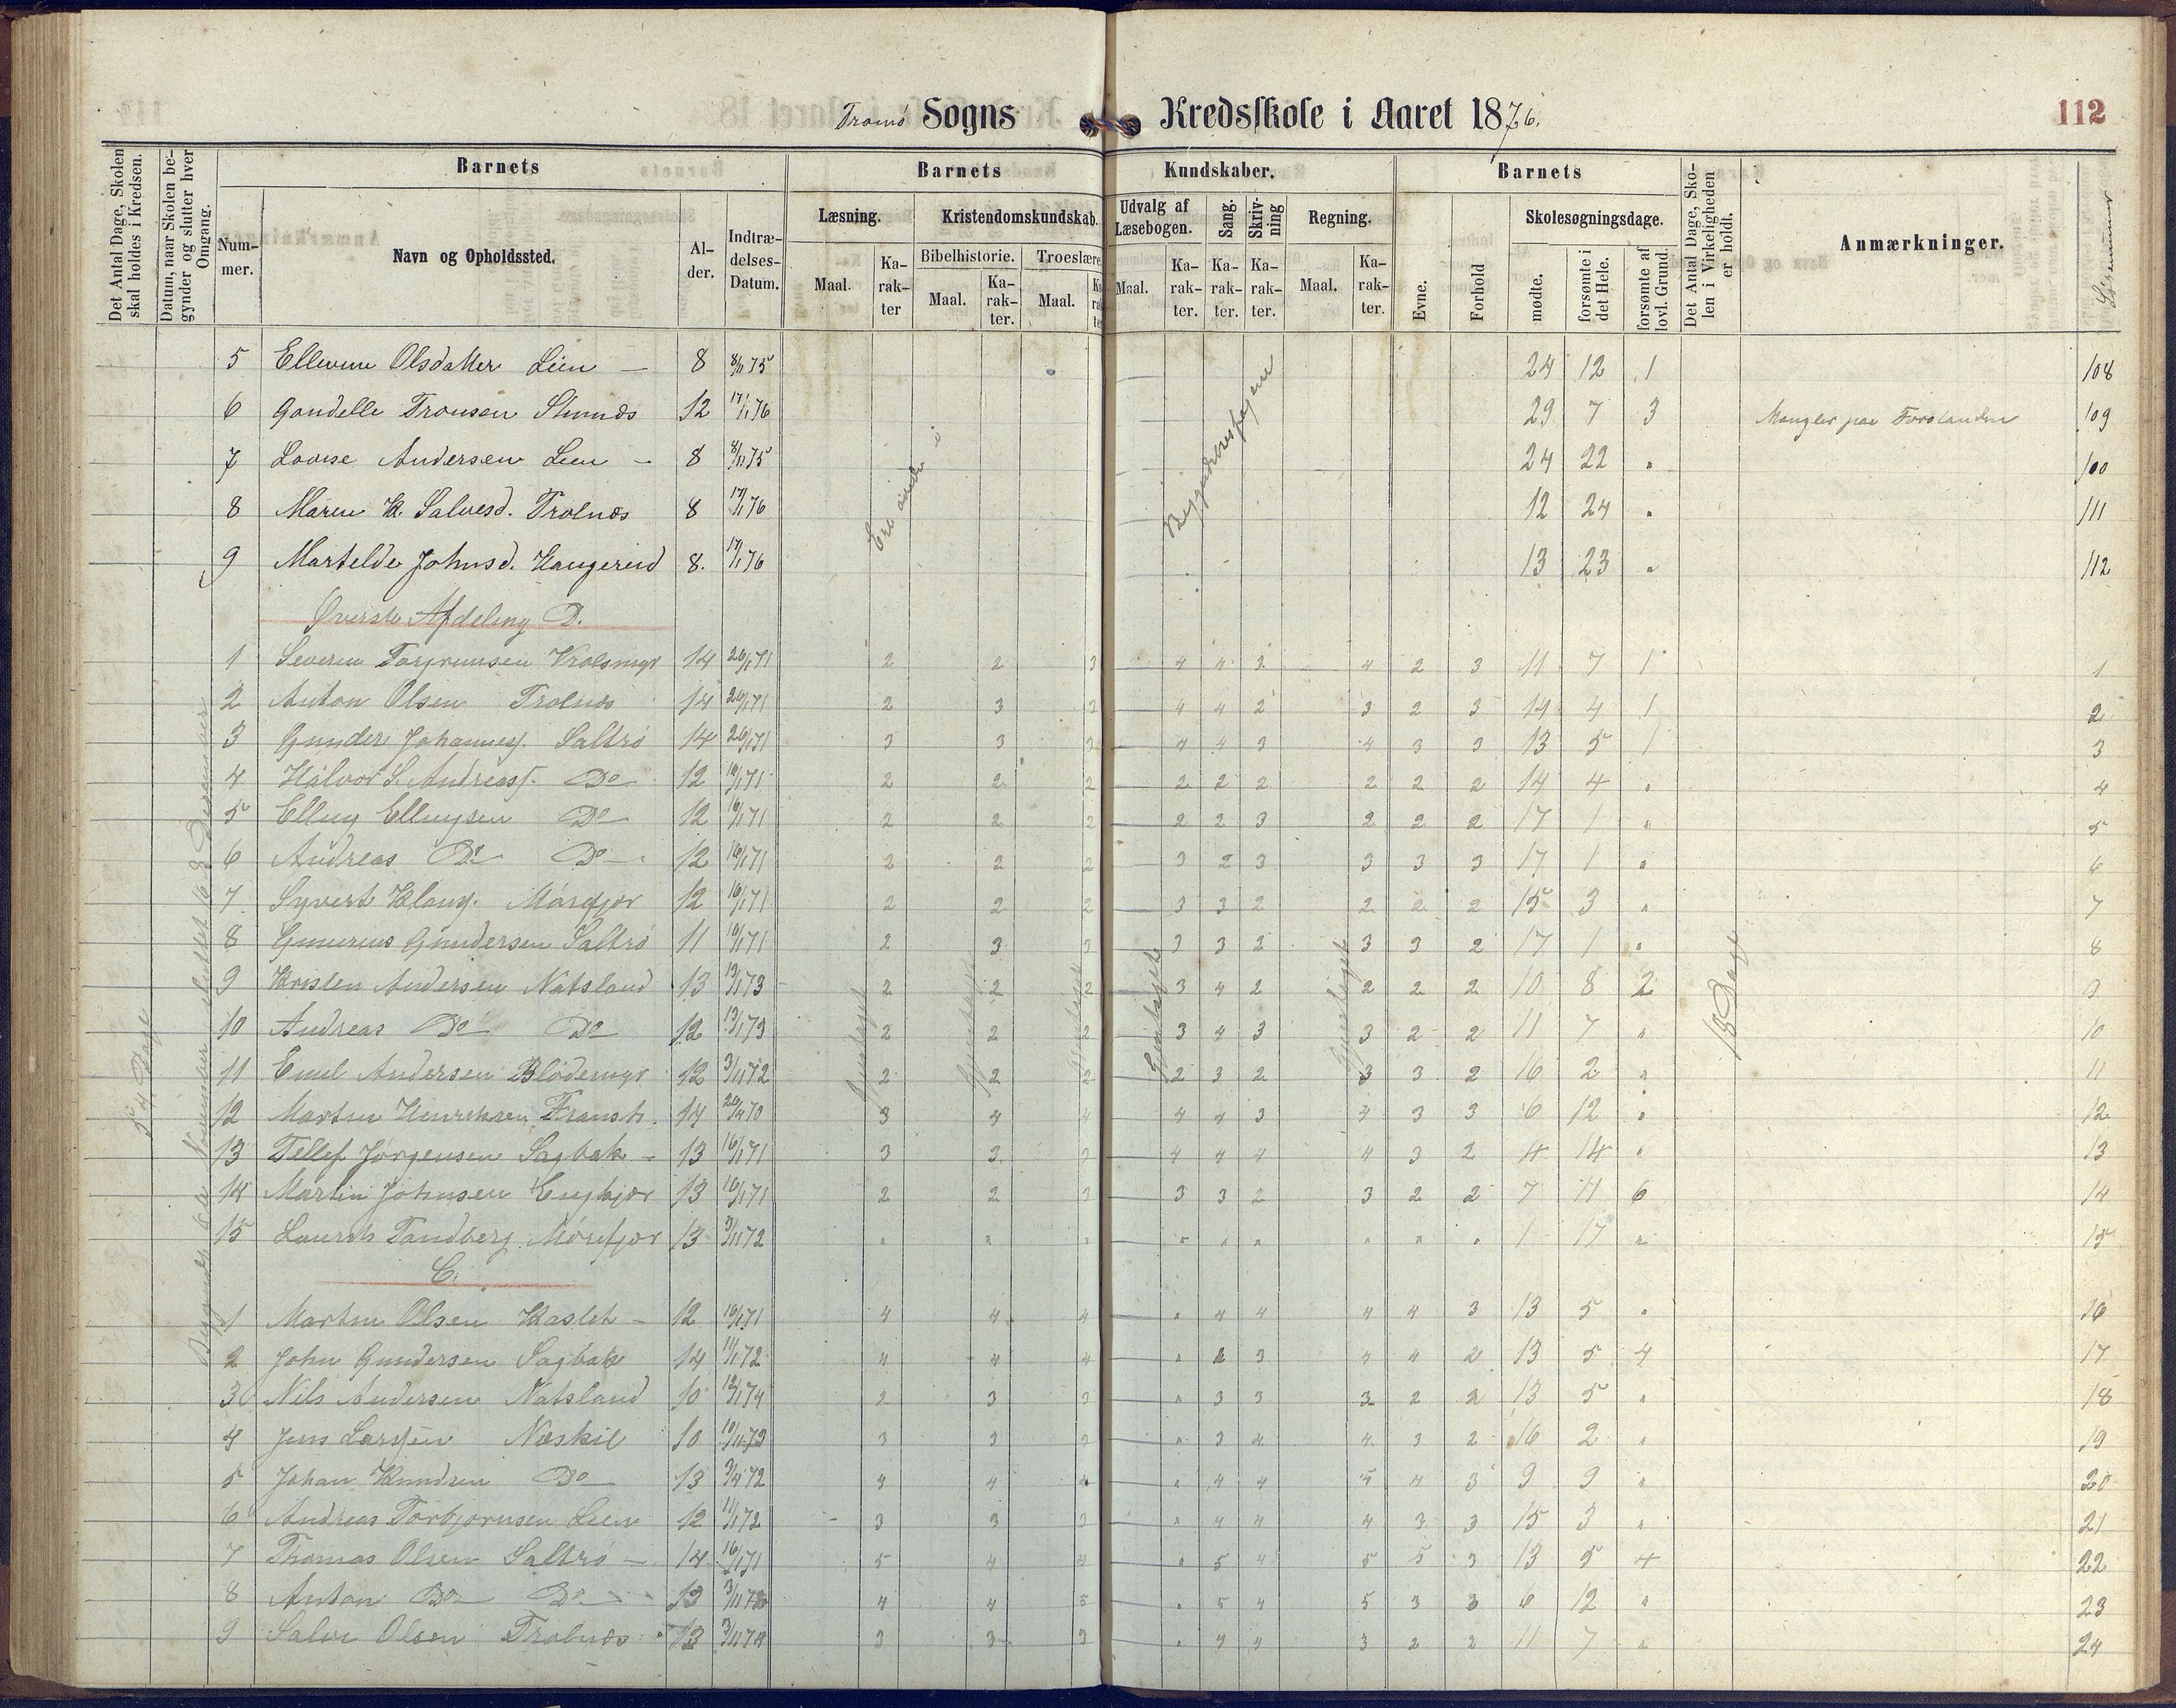 Tromø Sogns Kredsskole i Aaret 1876. 112
Det Antal Dage, Skolen skal holdes i Kredsen.
Datum, naar Skolen begynder og slutter hver Omgang.
Barnets
Nummer.
Navn og Opholdssted.
Alder.
Indtrædelses-Datum.
Barnets Kundskaber.
Læsning.
Maal.
Karakter
Kristendomskundskab.
Bibelhistorie.
Maal.
Karakter.
Troeslære
Maal.
Udvalg af Læsebogen.
Maal.
Karakter.
Sang.
Karakter.
Skrivning
Karakter.
Regning.
Maal.
Karakter.
Barnets
Evne.
Forhold
Skolesøgningsdage.
mødte.
forsømte i det Hele.
forsømte af lovl. Grund.
Det Antal Dage, Skolen i Virkeligheden er holdt.
Anmærkninger.
5 Ellevine Olsdatter Lien — 8 8/11 75 24 12 1 108
6 Gondelle Tronsen Stunæs 12 17/1 76 29 7 3 Mangler paa Forstanden 109
7 Lovise Andersen Lien — 8 8/11 75 24 22 " 100
8 Maren K. Salvesd. Trolnæs 8 17/1 76 12 24 " 111
9 Martelde Johnsd. Haugerud 8. 17/1 76 13 23 " 112
Begyndelsesfagene
Øverste Afdeling D.
1 Severin 14 26/1 71 2 2 3 4 4 3 4 2 3 11 7 1 1
2 Anton Olsen Trolnæs 14 26/1 71 2 3 3 4 4 2 3 2 3 14 4 1 2
3 Gunder Johannes. Saltrø 14 26/1 71 3 3 3 4 4 3 4 3 3 13 5 1 3
4 Halvor S. Andreas. Do 12 16/1 71 2 2 2 2 2 2 2 2 2 14 4 " 4
5 Elling Ellingsen Do 12 16/1 71 2 2 2 2 2 3 2 2 2 17 1 " 5
6 Andreas Do Do 12 16/1 71 2 2 2 3 2 3 3 3 3 17 1 " 6
7 Syvert Klaus. Mórefjær 12 16/1 71 2 2 2 3 3 2 2 2 2 15 3 " 7
8 Gunerius Gundersen Saltrø 11 16/1 71 2 3 3 3 3 2 3 3 2 17 1 " 8
9 Kristen Andersen Natsland 13 13/1 73 2 2 2 3 4 2 2 2 2 10 8 2 9
10 Andreas Do Do 12 13/1 73 2 2 2 3 4 3 3 2 2 11 7 " 10
11 Emil Andersen Blødemyr 12 3/11 72 2 2 2 2 3 2 3 3 2 16 2 " 11
12 Martin Henriksen 14 26/4 70 3 4 4 4 4 3 4 3 3 6 12 " 12
13 Tellef Jørgensen Sagbak — 13 16/1 71 3 3 3 4 4 4 4 3 2 4 14 " 13
14 Martin Johnsen Engkjær 13 16/1 71 2 2 3 3 3 2 3 2 2 7 11 6 14
15 Laurits Tandberg Mórefjær 13 3/11 72 " " " " " " " " " 1 17 " 15
54 Dage
18 Dage
Gjentaget
Gjentaget
Gjentaget
Gjentaget
Gjentaget
C.
1 Martin Olsen Haslet — 12 16/1 71 4 4 4 " 4 4 4 4 3 13 5 " 16
2 John Gundersen Sagbak 14 11/1 72 4 4 4 " 2 3 4 4 2 13 5 4 17
3 Nils Andersen Natsland 10 12/1 74 2 3 3 " 3 3 3 2 2 13 5 " 18
4 Jens Larssen Næskil 10 10/11 73 3 3 3 " 3 4 4 3 2 16 2 " 19
5 Johan Knudsen Do 13 3/4 72 4 4 4 " 4 4 5 4 3 9 9 " 20
6 Andreas Torbjørnsen Lien 12 11/1 72 3 3 3 " 4 4 4 3 3 15 3 " 21
7 Thomas Olsen Saltrø — 14 16/1 71 5 4 4 " 5 4 5 5 3 13 5 4 22
8 Anton Do Do 13 4 4 5 " 5 4 5 3 3 6 12 " 23
9 Salve Olsen Trolnæs 13 3/11 74 3 3 3 " 4 4 3 2 2 11 7 " 24